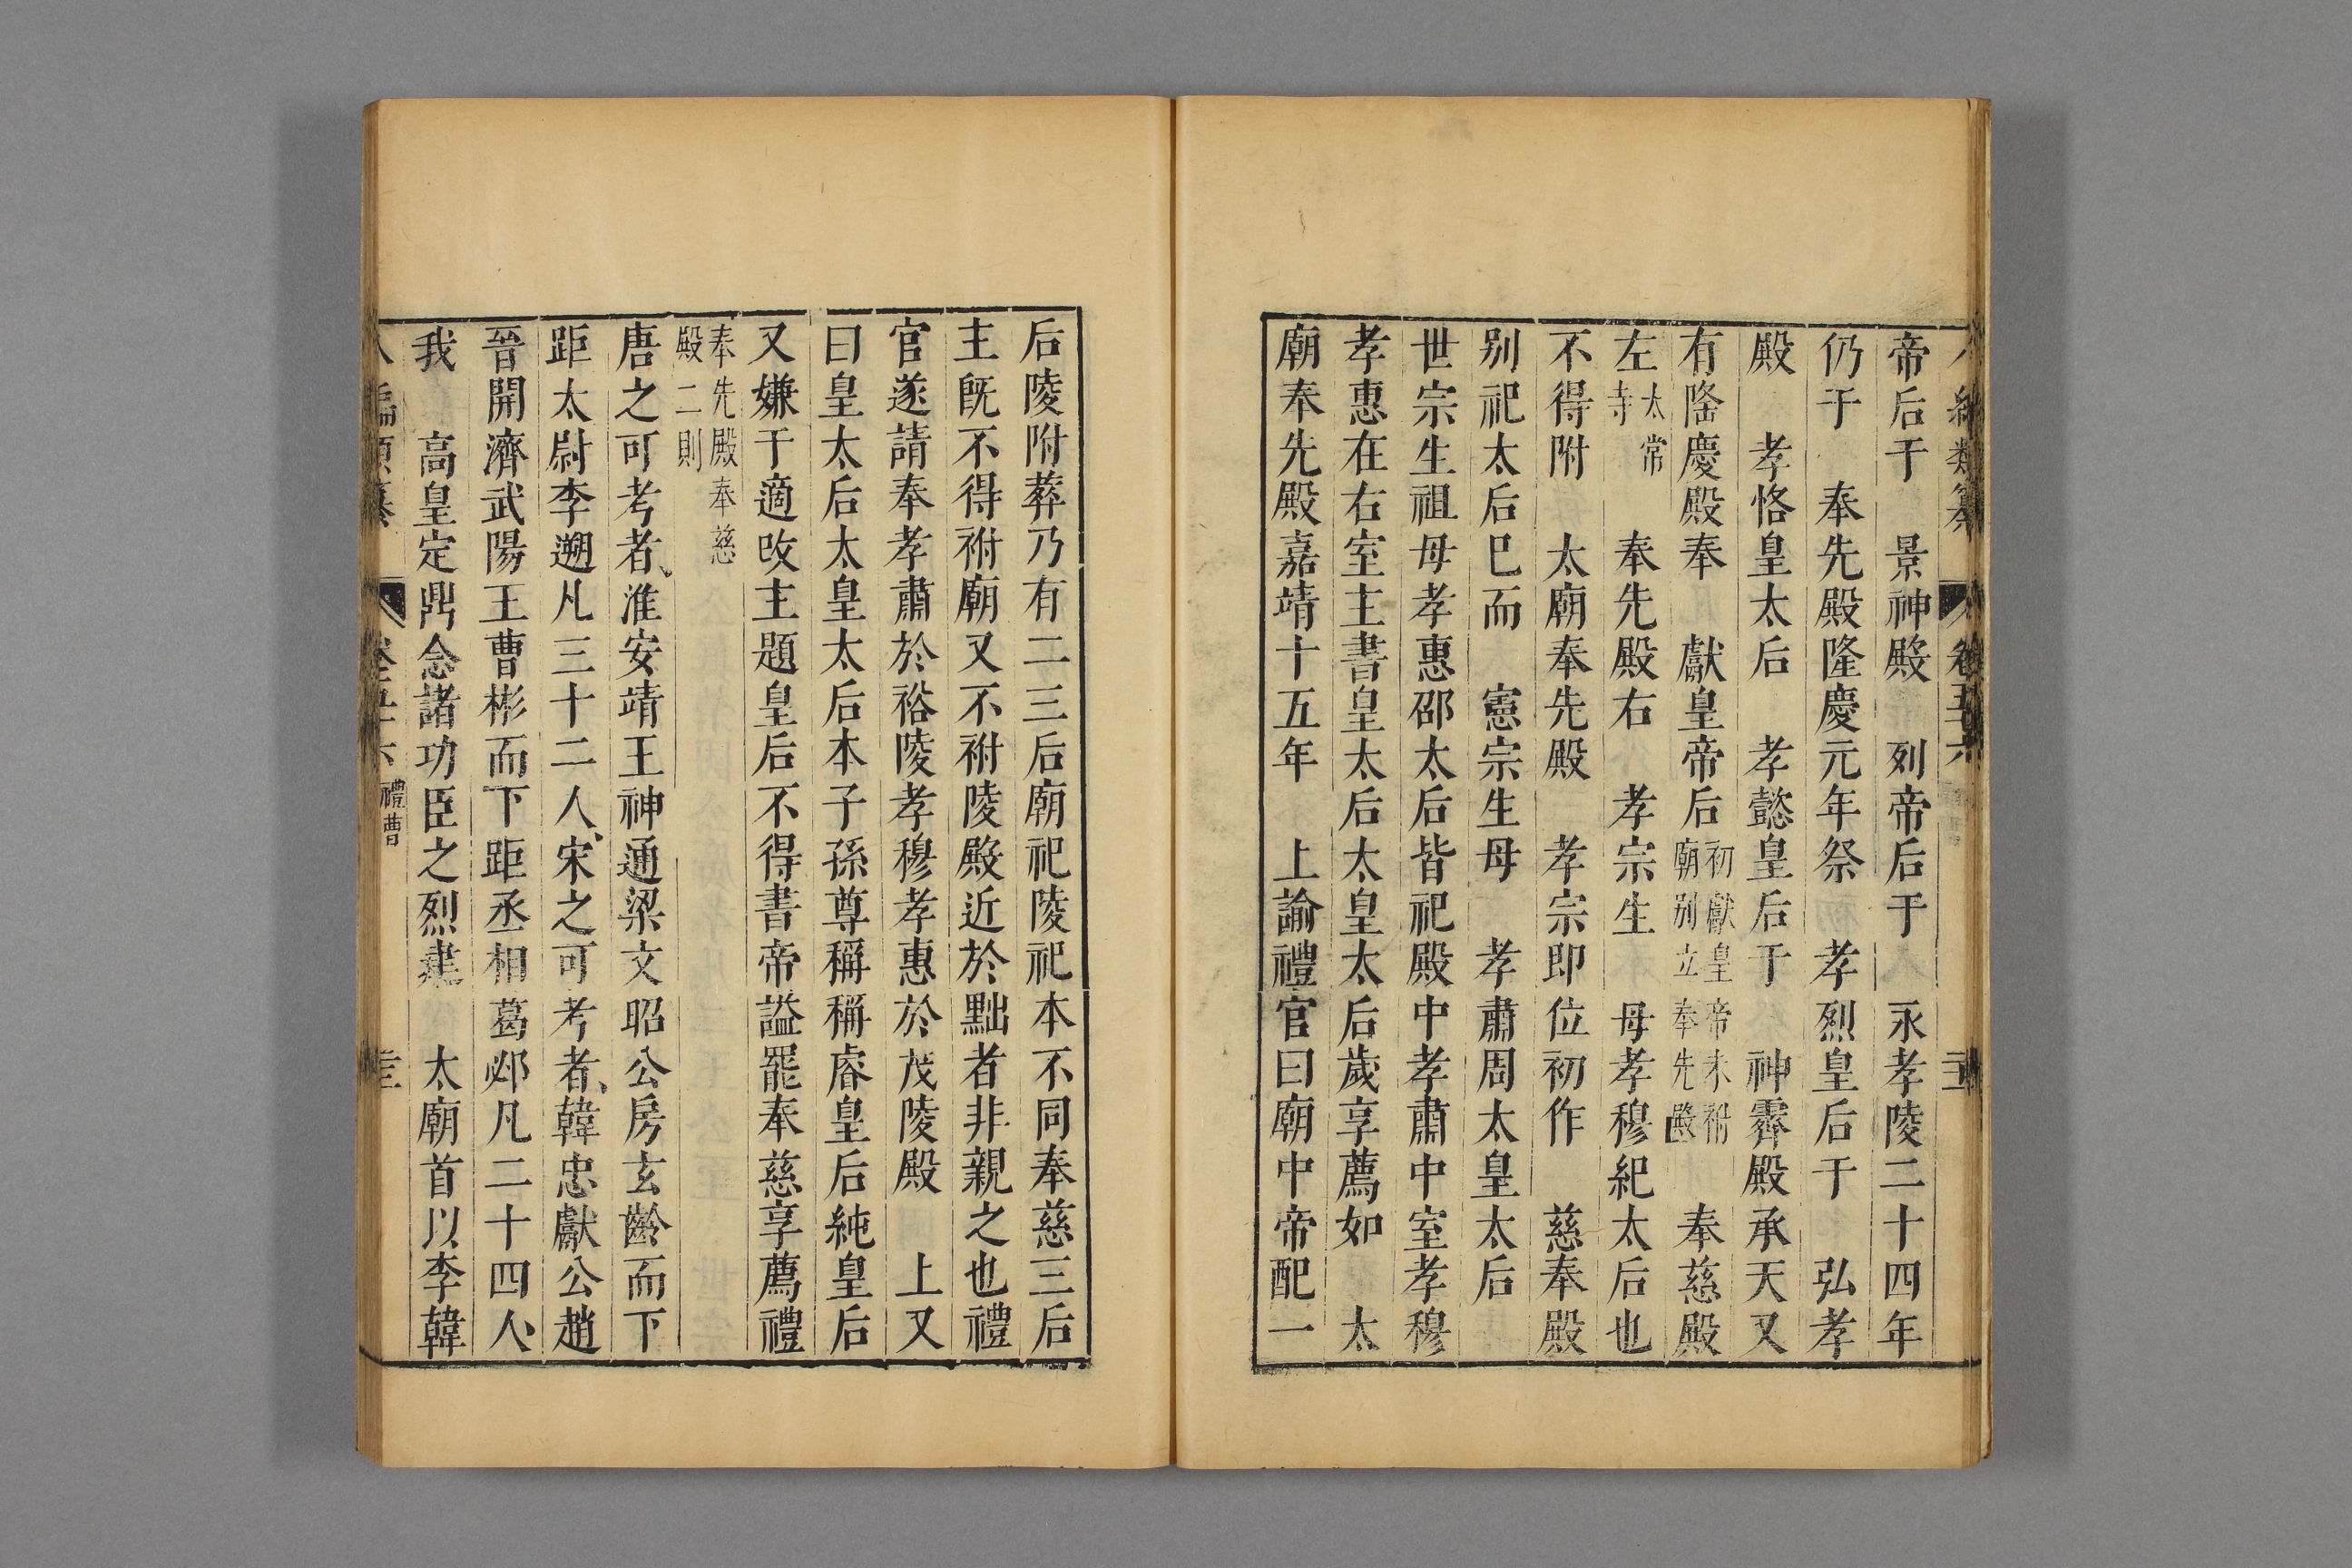 八編類纂 卷五十六
帝后于 景神殿 列帝后于 永孝陵二十四年
仍于 奉先殿隆慶元年祭 孝烈皇后于 弘孝
殿 孝恪皇太后 孝懿皇后于 神霽殿承天又
有隆慶殿奉 獻皇帝后初獻皇帝未祔廟别立奉先殿 奉慈殿
左太常寺 奉先殿右 孝宗生 母孝穆紀太后也
不得附 太廟奉先殿 孝宗即位初作 慈奉殿
别祀太后巳而 憲宗生母 孝肅周太皇太后
世宗生祖母孝惠邵太后皆祀殿中孝肅中室孝穆
孝惠在右室主書皇太后太皇太后歲享薦如 太
廟奉先殿嘉靖十五年 上諭禮官曰廟中帝配一
后陵附葬乃有二三后廟祀陵祀本不同奉慈三后
主旣不得祔廟又不祔陵殿近於黜者非親之也禮
官遂請奉孝肅於裕陵孝穆孝惠於茂陵殿 上又
曰皇太后太皇太后本子孫尊稱稱睿皇后純皇后
又嫌于適改主題皇后不得書帝謚罷奉慈享薦禮
奉先殿奉慈殿二則
唐之可考者、淮安靖王神通梁文昭公房玄齡而下
距太尉李遡凡三十二人、宋之可考者、韓忠獻公趙
晉開濟武陽王曹彬而下距丞相葛邲凡二十四人、
我 高皇定鼎念諸功臣之烈建 太廟首以李韓
八編類纂 卷五十六 禮曹